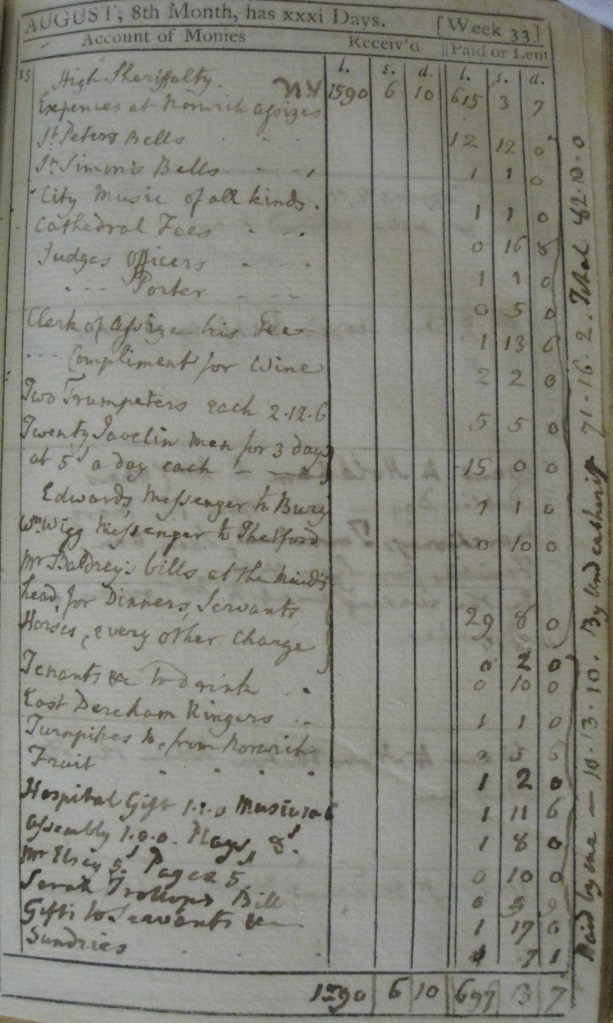 AUGUST, 8th Month, has xxxi Days. [Week 33]
Account of Monies Receiv'd Paid or Lent
l. s. d. l. s. d.
15 High Sheriffalty. 1590 6 10 615 3 7
Expences at Norwich assizes
St Peters Bells - - - 12 12 0
St Simonis Bells - - - 1 1 0
City Music of all kinds. 1 1 0
Cathedral Fees - - 0 16 8
Judges officers - - 1 1 0
- - - Porter - - 0 5 0
Clerk of assize his Fee 1 13 6
- - - Compliment for Wine 2 2 0
Two Trumpeters each 2-12-6 5 5 0
Twenty Javelin men for 3 days
at 5s a day each - - 15 0 0
Edwards Messenger to Bury 1 1 0
Wm Wigg Messenger to Thetford 0 10 0
Mr Baldrey's bills at the
head, for Dinners, Servants,
Horses, every other Charge 29 8 0
Tenants &c to drink - 0 2 0
East Dereham Ringers - - 0 10 0
Turnpikes to, from Norwich 1 1 0
Fruit 0 5 6
Hospital Gift 1-1-0 Music 10-6 1 2 0
Assembly 1-0-0. Plays, 8s. 1 11 6
Mr 5s Pages 5s 1 8 0
Sarah Trollops Bill 0 10 0
Gifts to Servants &c 0
Sundries 1 17 0
7 1
6 10 697 13 7
Paid by me - 10-13-10. By Undersheriff 71-16-2. Total 82-10-0